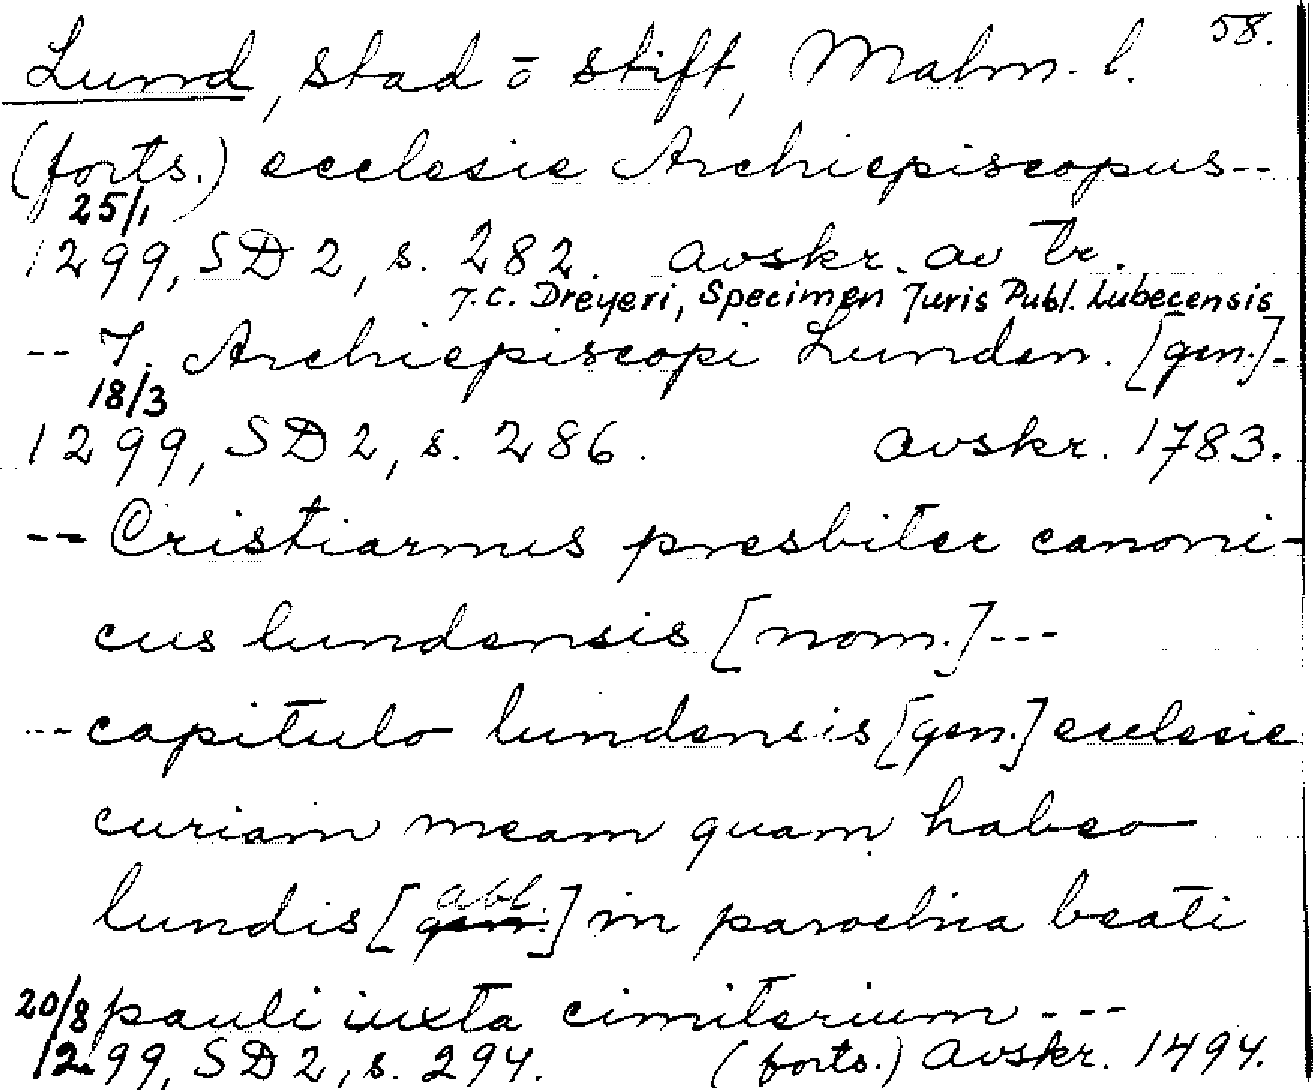 58.
Lund, stad o stift, Malm. l.
(forts.) ecclesie Archiepiscopus--
25/1
1299, SD 2, s. 282. avskr. av tr.
J.C. Dreyeri, Specimen Juris Publ. Lubecensis
-- J. Archiepiscopi Lunden. [gen.]-
18/3
1299, SD 2, s. 286. avskr. 1783.
-- Cristiarnus presbiter canoni-
cus lundensis [nom.]---
-- capitulo lundensis [gen.] ecclesie
curiam meam quam habeo
abl.
lundis [gen.] in parochia beati
20/8 pauli iuxta cimiterium ---
1299, SD 2, s. 294. (forts.) avskr. 1494.